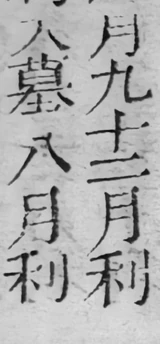 月九十二月利
入墓八月利